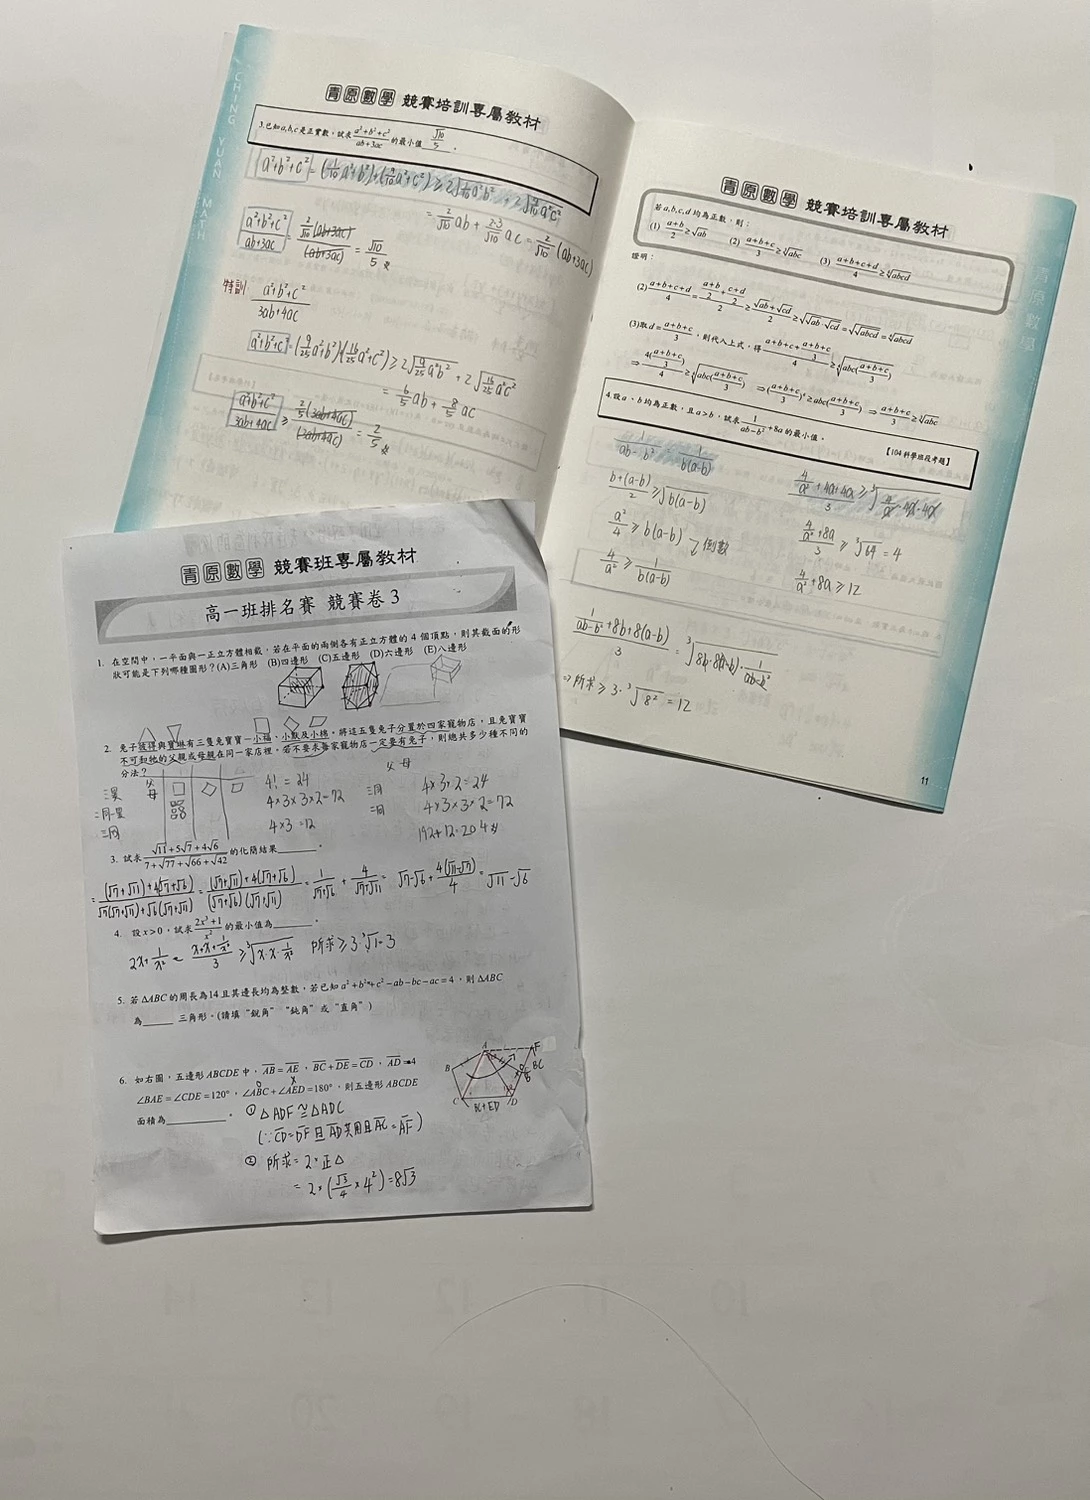 CHING YUAN MATH
青原數學 競賽培訓專屬教材
3.已知a,b,c是正實數，試求 (a²+b²+c²)/(ab+3ac) 的最小值 √10/5 。
a²+b²+c² = (1/10 a²+b²)+(9/10 a²+c²) ≥ 2√(1/10 a²b²) + 2√(9/10 a²c²)
= 2/√10 ab + 2·3/√10 ac = 2/√10 (ab+3ac)
(a²+b²+c²)/(ab+3ac) = (2/√10 (ab+3ac))/(ab+3ac) = √10/5
特訓 (a²+b²+c²)/(3ab+4ac)
a²+b²+c² = (9/25 a²+b²)(16/25 a²+c²) ≥ 2√(9/25 a²b²) + 2√(16/25 a²c²)
= 6/5 ab + 8/5 ac
(a²+b²+c²)/(3ab+4ac) ≥ (2/5 (3ab+4ac))/(3ab+4ac) = 2/5
青原數學 競賽培訓專屬教材
青原數學
若a,b,c,d均為正數，則：
(1) (a+b)/2 ≥ √ab (2) (a+b+c)/3 ≥ ∛abc (3) (a+b+c+d)/4 ≥ ∜abcd
證明：
(2) (a+b+c+d)/4 = ((a+b)/2+(c+d)/2)/2 ≥ (√ab+√cd)/2 ≥ √(√ab·√cd) = √√abcd = ∜abcd
(3)取d=(a+b+c)/3，則代入上式，得 (a+b+c+(a+b+c)/3)/4 ≥ ∜(abc((a+b+c)/3))
⇒ 4((a+b+c)/3)/4 ≥ ∜(abc((a+b+c)/3)) ⇒ ((a+b+c)/3)⁴ ≥ abc((a+b+c)/3) ⇒ (a+b+c)/3 ≥ ∛abc
4.設a、b均為正數，且a>b，試求 1/(ab-b²)+8a 的最小值。
【104科學班段考題】
1/(ab-b²) = 1/(b(a-b))
(b+(a-b))/2 ≥ √(b(a-b))
a²/4 ≥ b(a-b) 倒數
4/a² ≥ 1/(b(a-b))
(4/a²+4a+4a)/3 ≥ ∛(4/a²·4a·4a)
(4/a²+8a)/3 ≥ ∛64 = 4
4/a²+8a ≥ 12
(1/(ab-b²)+8b+8(a-b))/3 = ∛(8b·8(a-b)·1/(ab-b²))
⇒ 所求 ≥ 3·∛8² = 12
11
青原數學 競賽班專屬教材
高一班排名賽 競賽卷3
1. 在空間中，一平面與一正立方體相截，若在平面的兩側各有正立方體的 4 個頂點，則其截面的形
狀可能是下列哪種圖形？(A)三角形 (B)四邊形 (C)五邊形 (D)六邊形 (E)八邊形
2. 兔子彼得與寶琳有三隻兔寶寶─小福、小默及小棉。將這五隻兔子分置於四家寵物店，且兔寶寶
不可和牠的父親或母親在同一家店裡。若不要求每家寵物店一定要有兔子，則總共多少種不同的
分法？
父
母
三異 4! = 24
二同一異 4×3×3×2=72
三同 4×3=12
父母
三同 4×3×2=24
二同 4×3×3×2=72
192+12=204
3. 試求 (√11+5√7+4√6)/(7+√77+√66+√42) 的化簡結果________。
= ((√7+√11)+4(√7+√6))/(√7(√7+√11)+√6(√7+√11)) = ((√7+√11)+4(√7+√6))/((√7+√6)(√7+√11)) = 1/(√7+√6) + 4/(√7+√11) = √7-√6+4(√11-√7)/4 = √11-√6
4. 設x>0，試求 (2x³+1)/x² 的最小值為________。
2x+1/x² = (x+x+1/x²)/3 ≥ ∛(x·x·1/x²) 所求≥3·∛1=3
5. 若△ABC的周長為14且其邊長均為整數，若已知a²+b²+c²-ab-bc-ac=4，則△ABC
為______三角形。(請填“銳角” “鈍角” 或 “直角”)
6. 如右圖，五邊形ABCDE中，AB=AE，BC+DE=CD，AD=4
∠BAE=∠CDE=120°，∠ABC+∠AED=180°，則五邊形ABCDE
面積為__________。
① △ADF≅△ADC
(∵CD=DF 且 AD共用且AC=AF)
② 所求=2×正△
= 2×(√3/4×4²)=8√3
A
F
B
BC
E
C
D
BC+ED